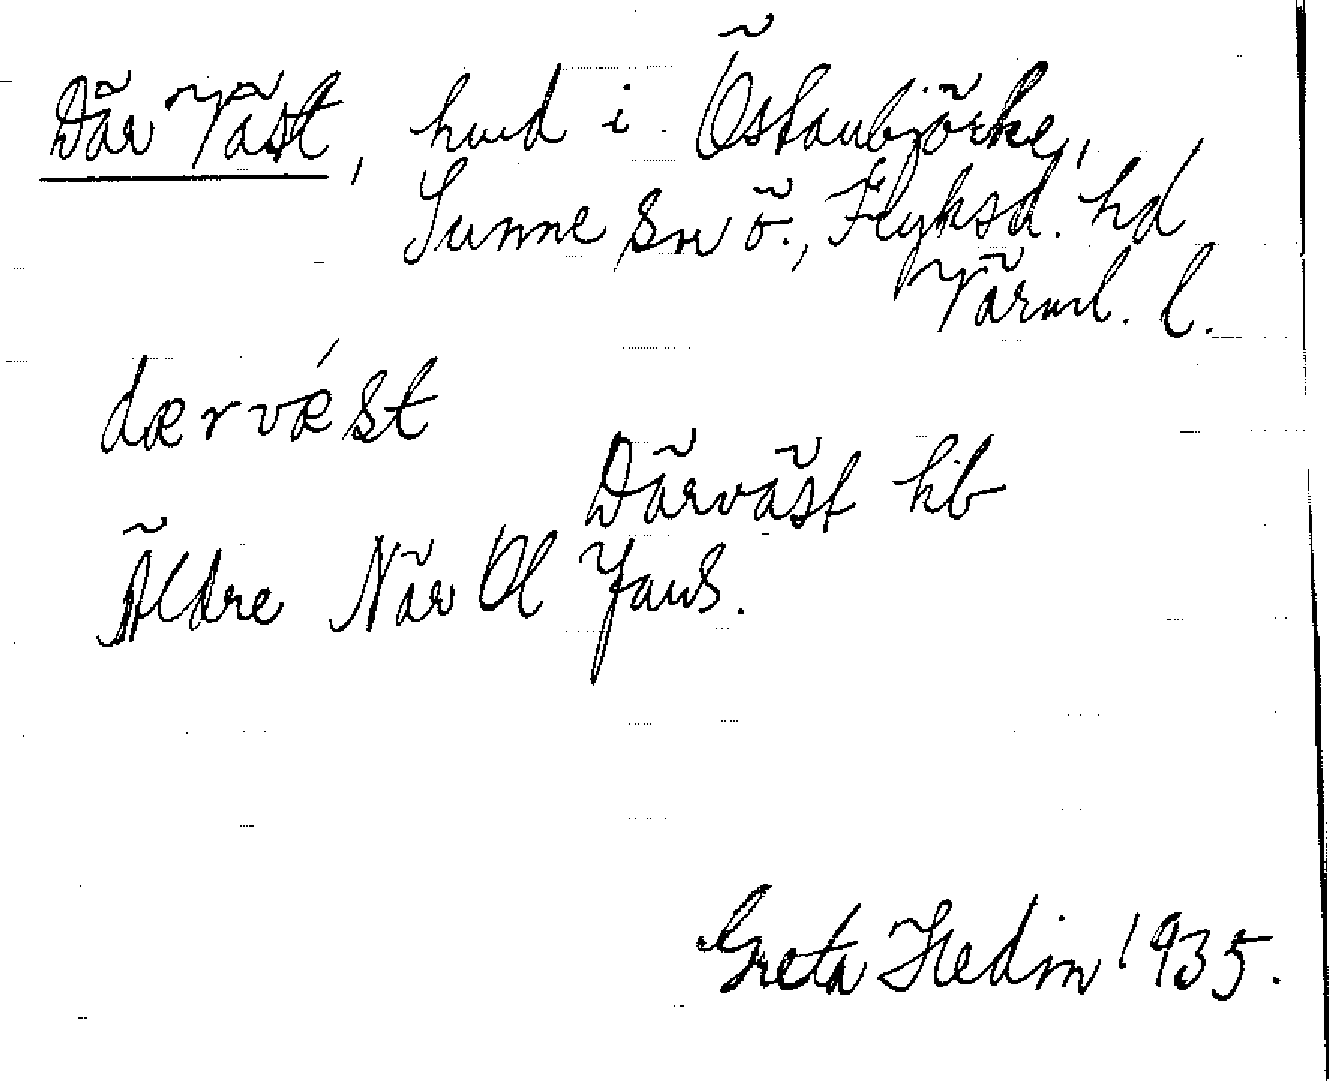 Där Väst, hmd i Östanbjörke,
Sunne sn ö., Fryksd. hd
Värml. l.
dærvǽst
Därväst hb
Äldre När Ol Jans.
Greta Hedin 1935.